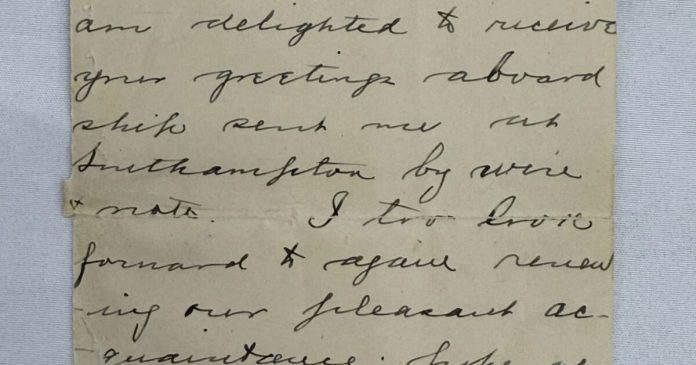 am delighted to receive
your greetings aboard
ship sent me at
Southampton by wire
& note. I too look
forward to again renew
-ing our pleasant ac-
quaintance.